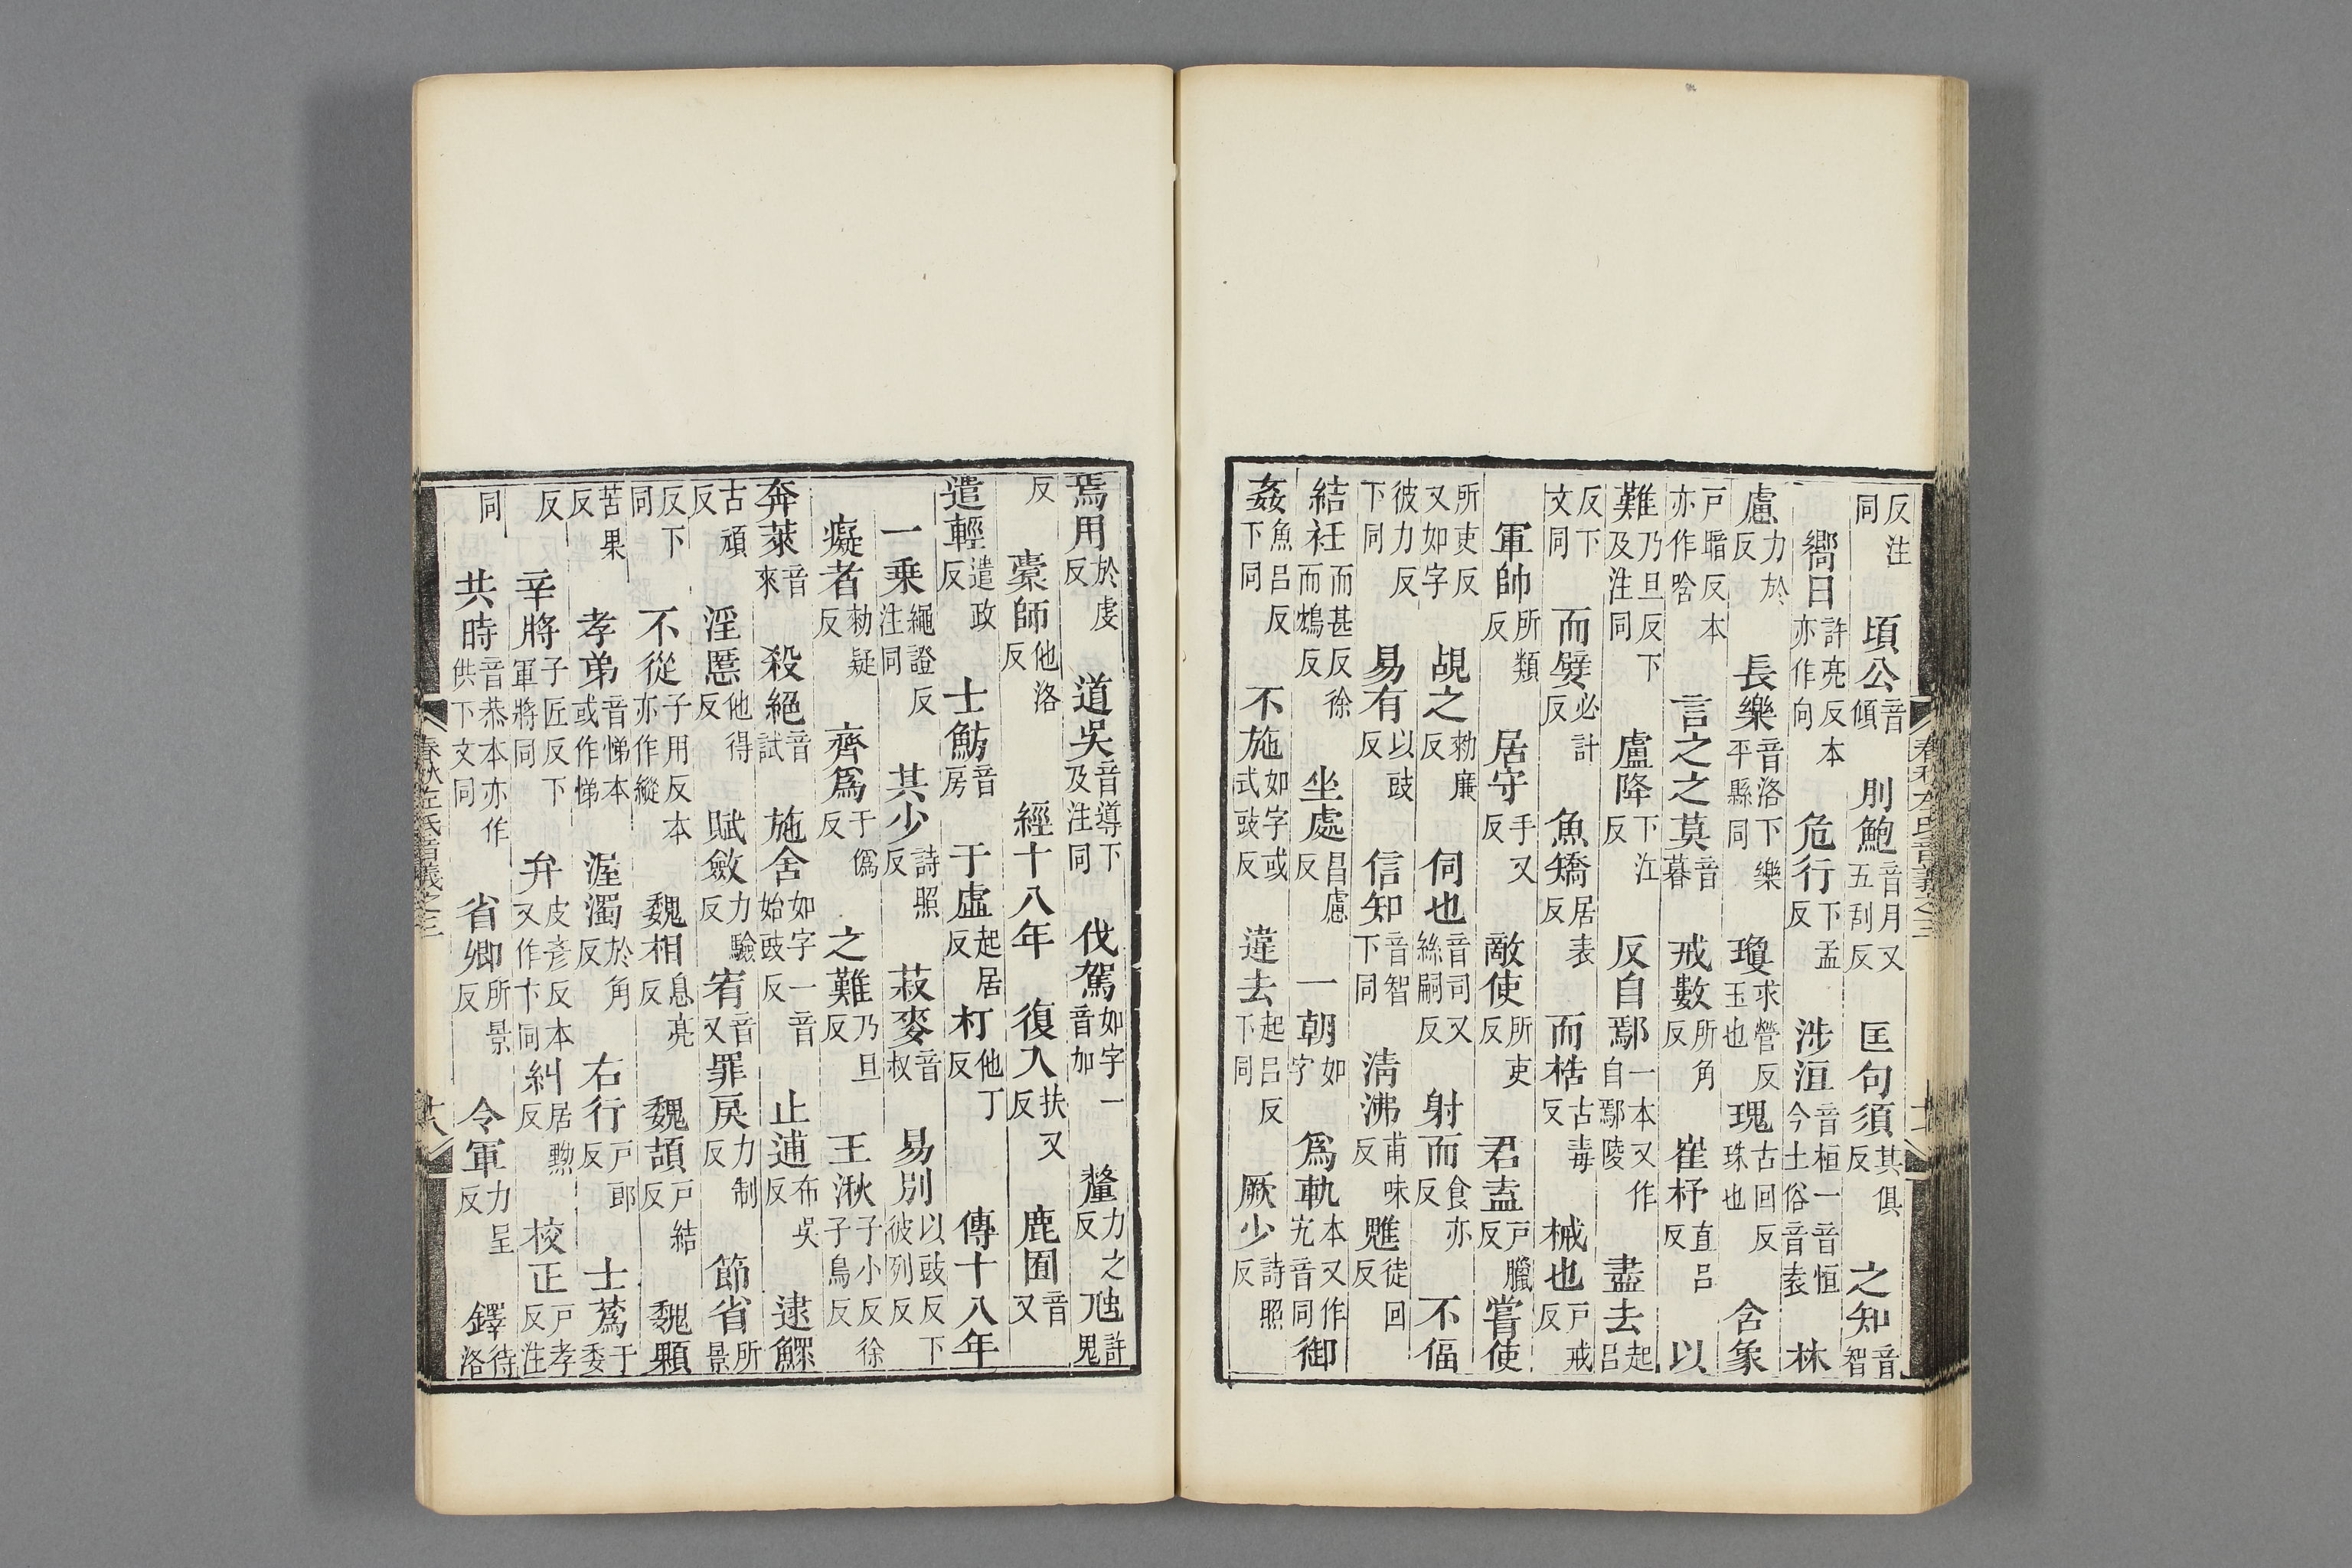 反注同 頃公音傾 刖鮑音月又五刮反 匡句須其俱反 之知音智
嚮日許亮反本亦作向 危行下孟反 涉洹音桓一音恒今土俗音袁 林
慮力於反 長樂音洛下樂平縣同 瓊求營反玉也 瑰古回反珠也 含象
戸暗反本亦作唅 言之之莫音暮 戒數所角反 崔杼直呂反 以
難乃旦反下及注同 盧降下江反 反自鄢一本又作自鄢陵 盡去起呂
反下文同 而嬖必計反 魚矯居表反 而梏古毒反 械也戸戒反
軍帥所類反 居守手又反 敵使所吏反 君盍戸臘反 嘗使
所吏反又如字 覘之勑廉反 伺也音司又絲嗣反 射而食亦反 不偪
彼力反下同 易有以豉反 信知音智下同 清沸甫味反 魋徒回反
結衽而甚反徐而鴆反 坐處昌慮反 一朝如字 爲軌本又作宄音同 御
姦魚呂反下同 不施如字或式豉反 違去起呂反下同 厥少詩照反
焉用於虔反 道吳音導下及注同 伐駕如字一音加 釐力之反 虺許鬼
反 橐師他洛反 經十八年 復入扶又反 鹿囿音又
遣輕遣政反 士魴音房 于虛起居反 朾他丁反 傳十八年
一乘繩證反注同 其少詩照反 菽麥音叔 易別以豉反下彼列反
癡者勑疑反 齊爲于僞反 之難乃旦反 王湫子小反徐子鳥反
奔萊音來 殺絕音試 施舍如字一音始豉反 止逋布吳反 逮鰥
古頑反 淫慝他得反 賦斂力驗反 宥音又 罪戾力制反 節省所景
反下同 不從子用反本亦作縱 魏相息亮反 魏頡戸結反 魏顆
苦果反 孝弟音悌本或作悌 渥濁於角反 右行戸郎反 士蔿于委
反 辛將子匠反下軍將同 弁皮彥反本又作卞同 糾居黝反 校正戸孝反注
同 共時音恭本亦作供下文同 省卿所景反 令軍力呈反 鐸待洛
春秋左氏音義之三
春秋左氏音義之三